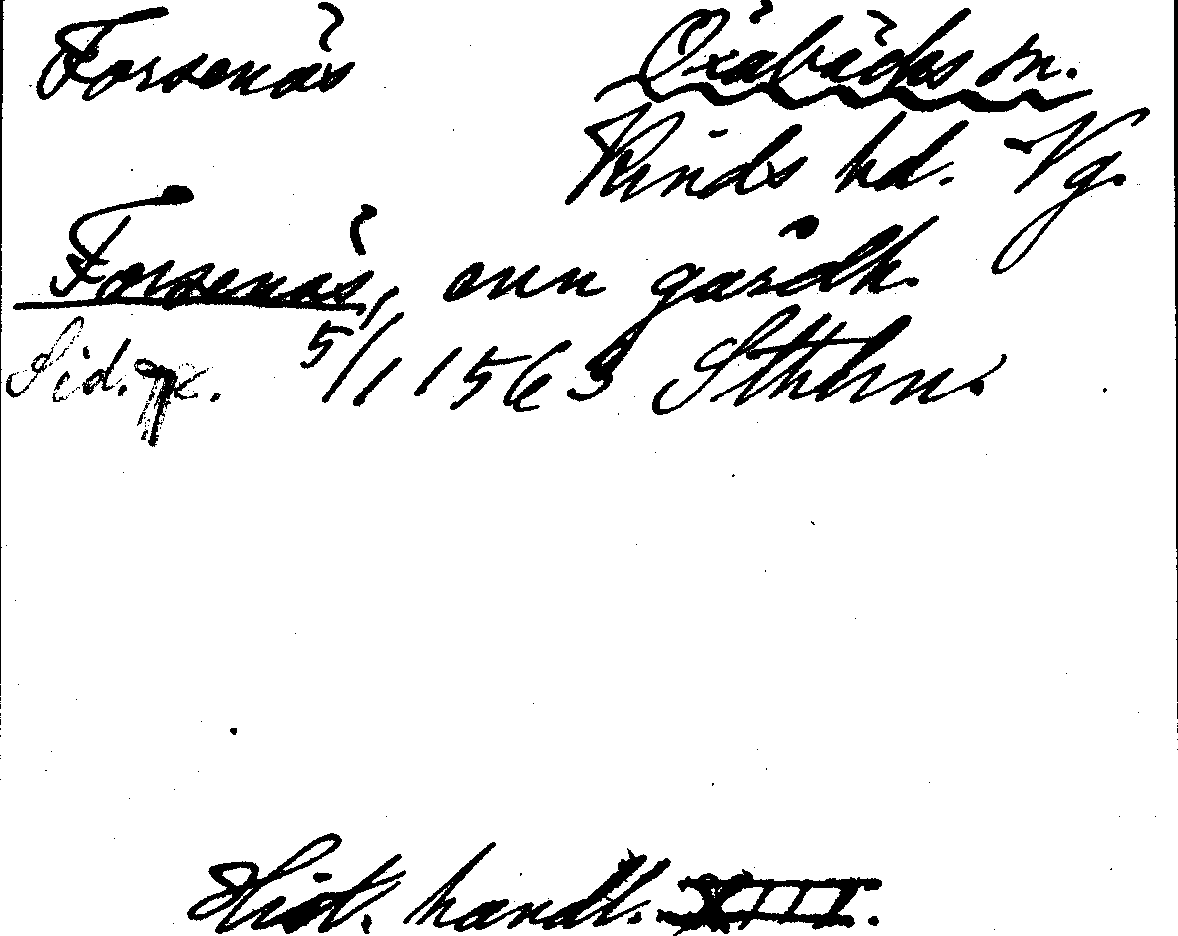 Forsenäs Öxabäcks sn.
Kinds hd. Vg.
Forsenäs, enn gårdh.
Sid. 5/1 1563 Sthlm.
Hist. handl. XIII.